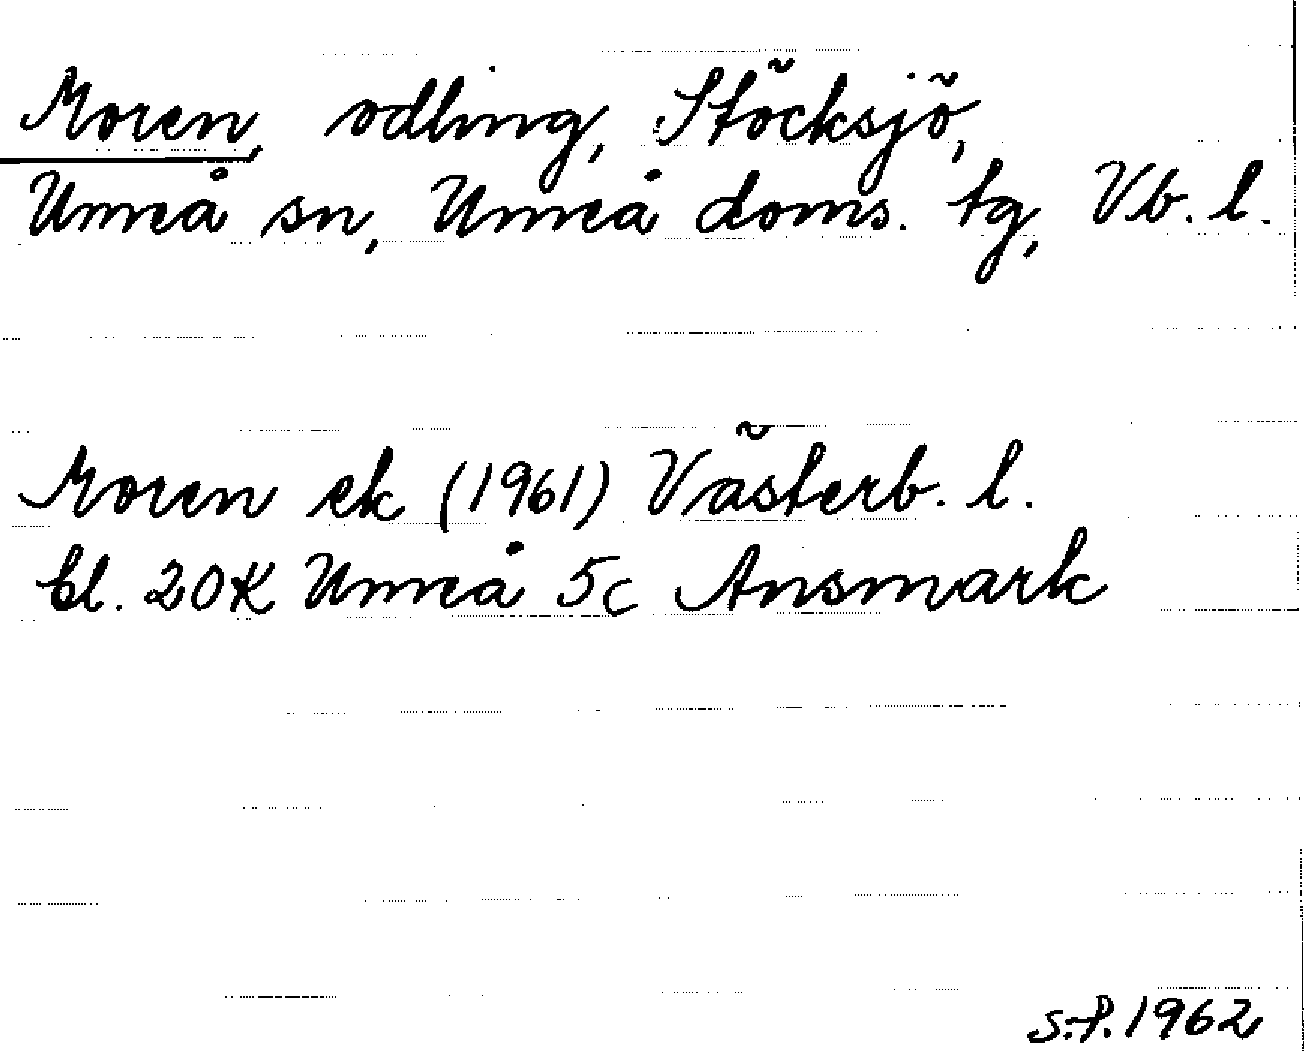 Moren, odling, Stöcksjö,
Umeå sn, Umeå doms. tg, Vb. l.
Moren ek (1961) Västerb. l.
bl. 20K Umeå 5c Ansmark
S.P. 1962